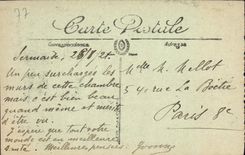 77
Carte Postale
Correspondance
Adresse
Sermaize, 28/8/21.
Un peu surchargés les
murs de cette chambre
mais c'est bien beau
quand même et mérite
d'être vu.
J'espère que tout votre
monde est en meilleure
santé. Meilleures pensées. Yvonne
Mlle M. Mellot
54 rue La Boëtie
Paris 8e